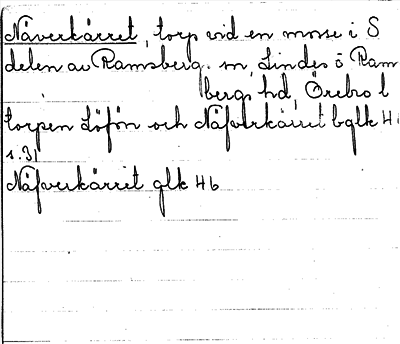 Näverkärret, torp vid en mosse i S
delen av Ramsberg sn, Lindes o Ram
bergs hd, Örebro l
torpen Löfön och Näfverkärret bglk 4
1:3
Näfverkärret glk 46